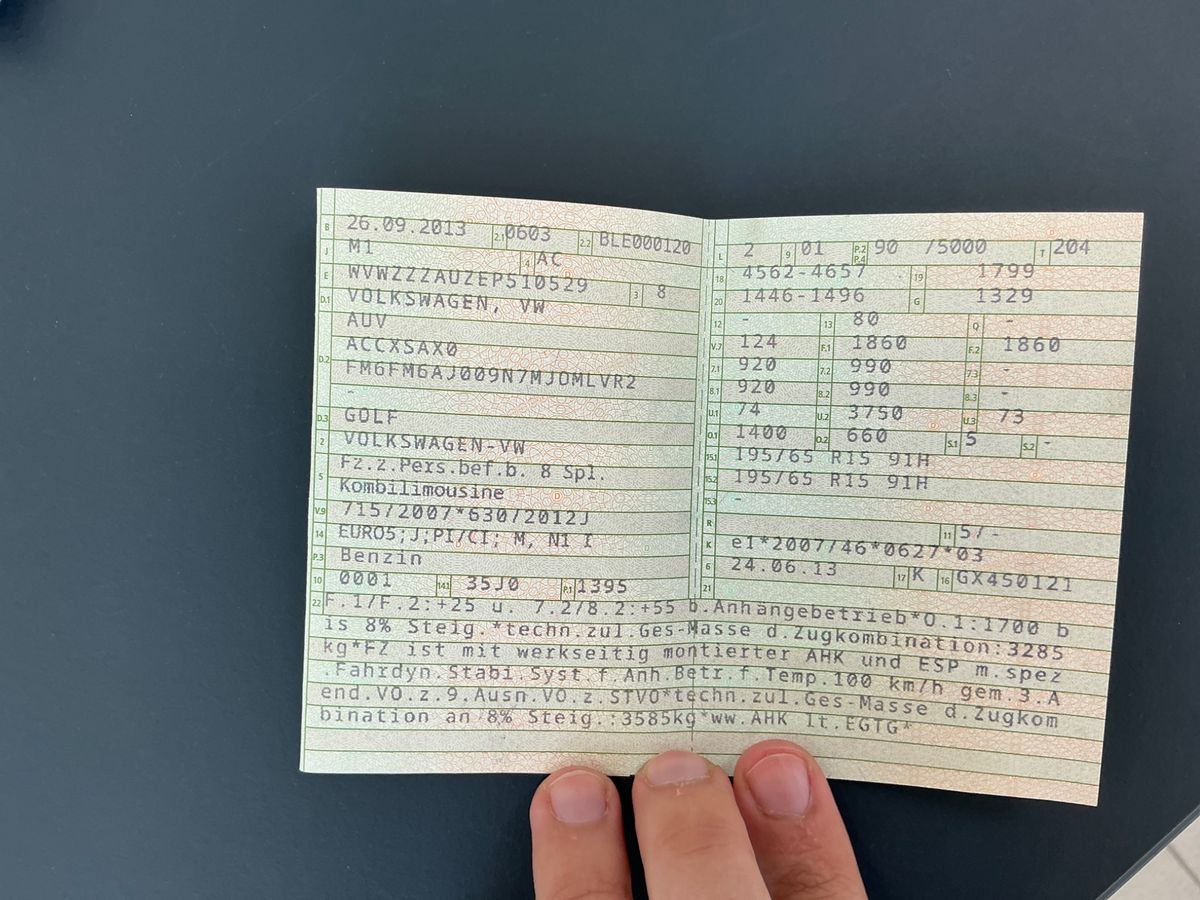 B 26.09.2013 2.1 0603 2.2 BLE000120
J M1 4 AC
E WVWZZZAUZEP510529 3 8
D.1 VOLKSWAGEN, VW
AUV
D.2 ACCXSAX0
FM6FM6AJ009N7MJOMLVR2
-
D.3 GOLF
2 VOLKSWAGEN-VW
5 Fz.z.Pers.bef.b. 8 Spl.
Kombilimousine
V.9 715/2007*630/2012J
14 EURO5;J;PI/CI; M, N1 I
P.3 Benzin
10 0001 14.1 35J0 P.1 1395
L 2 9 01 P.2 P.4 90 /5000 T 204
18 4562-4657 19 1799
20 1446-1496 G 1329
12 - 13 80 Q -
V.7 124 F.1 1860 F.2 1860
7.1 920 7.2 990 7.3 -
8.1 920 8.2 990 8.3 -
U.1 74 U.2 3750 U.3 73
O.1 1400 O.2 660 S.1 5 S.2 -
15.1 195/65 R15 91H
15.2 195/65 R15 91H
15.3 -
R 11 5/-
K e1*2007/46*0627*03
6 24.06.13 17 K 16 GX450121
21
22 F.1/F.2:+25 u. 7.2/8.2:+55 b.Anhängebetrieb*O.1:1700 b
is 8% Steig.*techn.zul.Ges-Masse d.Zugkombination:3285
kg*FZ ist mit werkseitig montierter AHK und ESP m.spez
.Fahrdyn.Stabi.Syst.f.Anh.Betr.f.Temp.100 km/h gem.3.Ä
end.VO.z.9.Ausn.VO.z.STVO*techn.zul.Ges-Masse d.Zugkom
bination an 8% Steig.:3585kg*ww.AHK lt.EGTG*